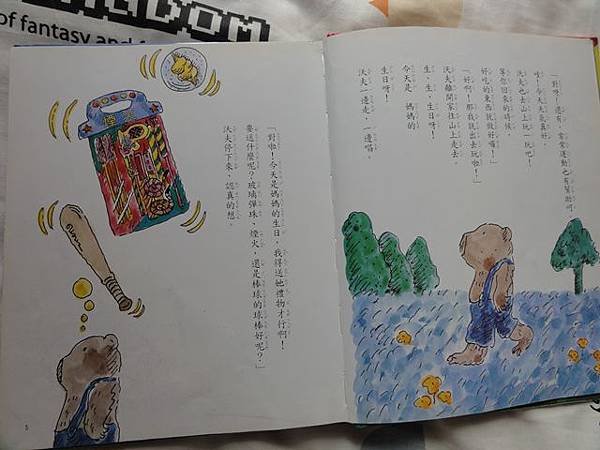 of fantasy and
「對呀！還有，常常運動也有幫助呵，
哇！今天天氣真好，
沃夫也去山上玩一玩吧！
等你回來的時候，
好吃的東西就做好囉！」
「好啊！那我就出去玩啦！」
沃夫離開家往山上走去。
生、生、生日呀！
今天是 媽媽的
生日呀！
沃夫一邊走，一邊唱。
「對啦！今天是媽媽的生日，我得送她禮物才行啊！
要送什麼呢？玻璃彈珠，煙火，還是棒球的球棒好呢？」
沃夫停下來，認真的想。
5